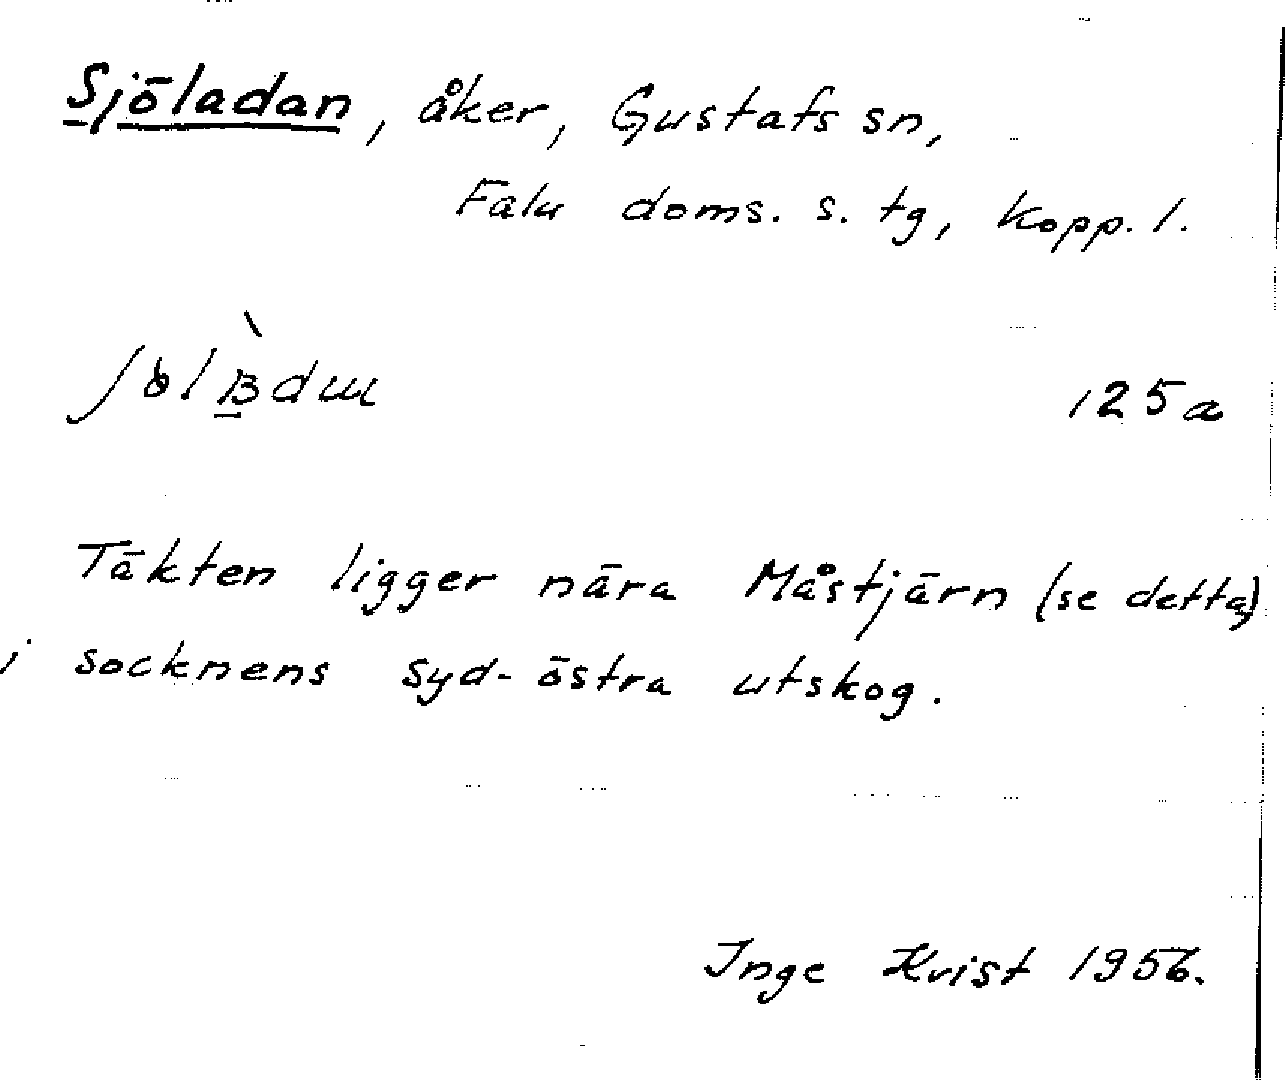 Sjöladan, åker, Gustafs sn,
Falu doms. s. tg, Kopp. l.
125a
Täkten ligger nära Måstjärn (se detta)
i socknens syd-östra utskog.
Inge Kvist 1956.